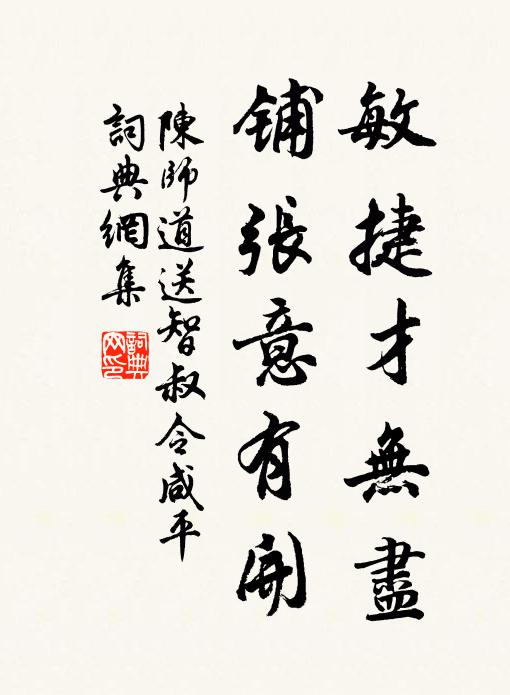 敏捷才無盡
铺張意有開
陳師道送智叔令咸平
詞典網集
詞典网印